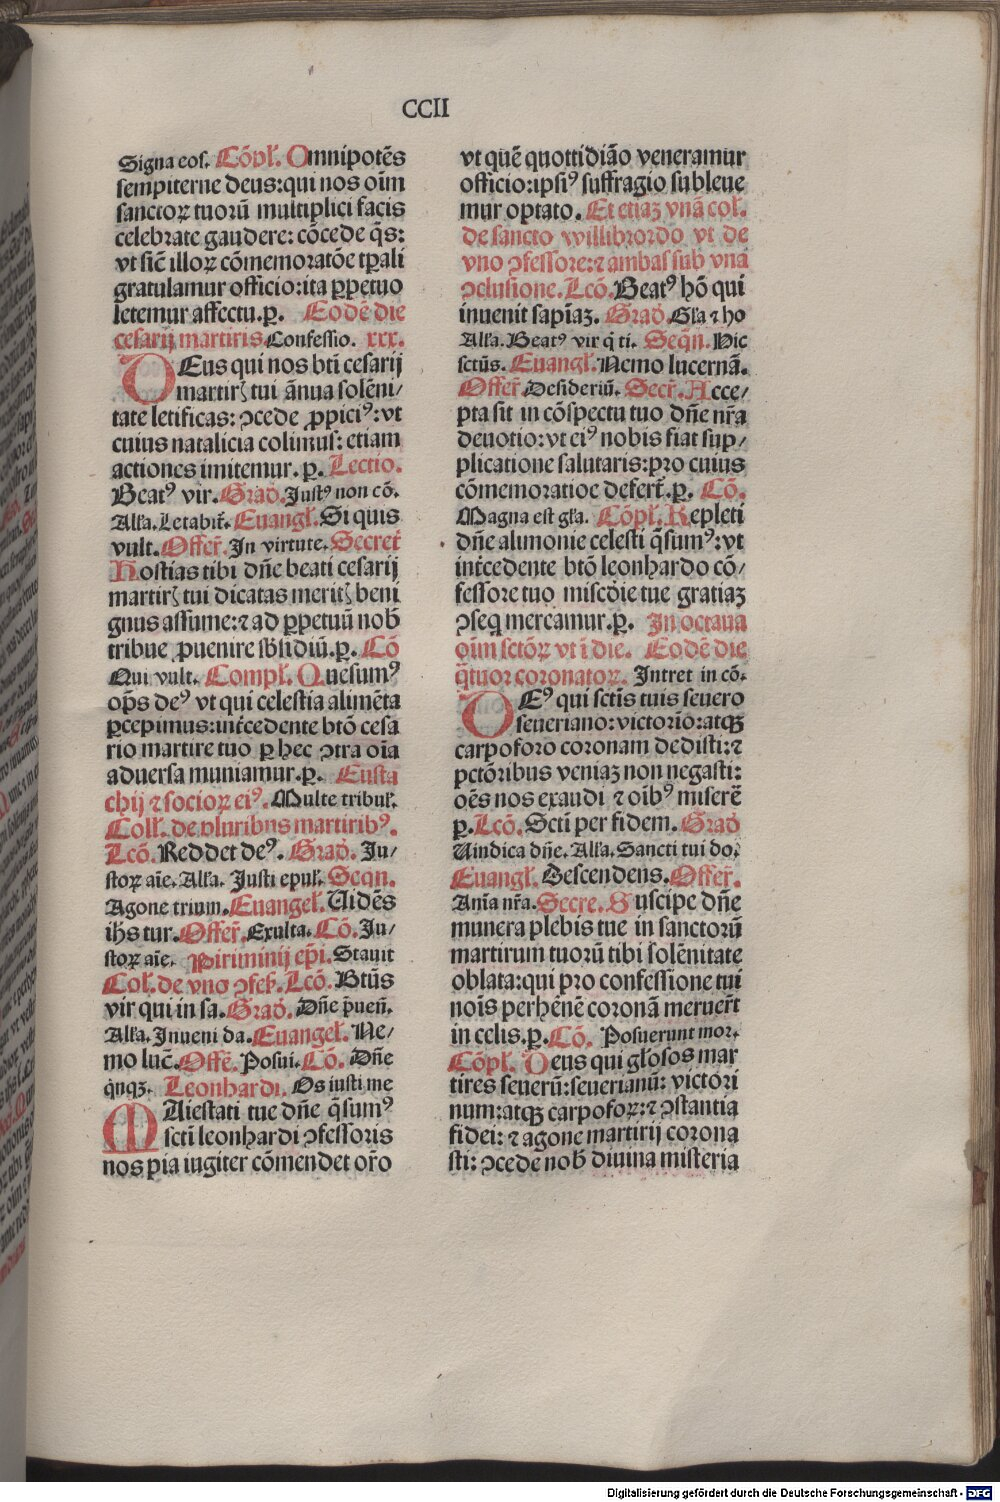 CCII
Signa eos. Cōpł. Omnipotēs
sempiterne deus:qui nos oīm
sanctoꝝ tuorū multiplici facis
celebrate gaudere: cōcede q̄s:
vt sic̄ illoꝝ cōmemoratōe tꝑali
gratulamur officio:ita ꝑpetuo
letemur affectu.ꝑ. Eodē die
cesarij martiris Confessio. xxx.
DEus qui nos bt̄i cesarij
martirꝭ tui ānua solēni/
tate letificas: ꝯcede ꝓpiciꝰ:vt
cuius natalicia colimus: etiam
actiones imitemur.ꝑ. Lectio.
Beatꝰ vir. Grad. Justꝰ non cō.
Alła. Letabit̄. Euangł. Si quis
vult. Offer̄. In virtute. Secret̄
Hostias tibi dn̄e beati cesarij
martirꝭ tui dicatas meritꝭ beni
gnus assume:⁊ ad ꝑpetuū nob̄
tribue ꝓuenire sb̄sidiū.ꝑ. Cō
Qui vult. Compł. Quesumꝰ
op̄s deꝰ vt qui celestia alimēta
ꝑcepimus:int̄cedente btō cesa
rio martire tuo ꝑ hec ꝯtra oīa
aduersa muniamur.ꝑ. Eusta
chij ⁊ socioꝝ eiꝰ. Multe tribuł.
Colł. de pluribus martiribꝰ.
Lcō. Reddet deꝰ. Grad. Ju/
stoꝝ aīe. Alła. Justi epuł. Seqn.
Agone trium. Euangeł. Uidēs
ih̄s tur. Offer̄. Exulta. Cō. Ju/
stoꝝ aīe. Piriminij ep̄i. Statuit
Coł. de vno ꝯfeſ. Lcō. Btūs
vir qui in sa. Grad. Dn̄e p̄uen̄.
Alła. Inueni da. Euangeł. Ne/
mo luc̄. Offē. Posui. Cō. Dn̄e
q̇nqꝫ. Leonhardi. Os iusti me
MAiestati tue dn̄e q̄sumꝰ
sct̄i leonhardi ꝯfessoris
nos pia iugiter cōmendet or̄o
vt quē quottidiāo veneramur
officio:ipsiꝰ suffragio subleue
mur optato. Et etiaꝫ vnā coł.
de sancto willibrordo vt de
vno ꝯfessore:⁊ ambas sub vna
ꝯclusione. Lcō. Beatꝰ hō qui
inuenit sapiaꝫ. Grad. Gła ⁊ ho
Alła. Beatꝰ vir q̄ ti. Seqn̄. Hic
sctūs. Euangł. Nemo lucernā.
Offer̄ Desideriū. Secr̄. Acce/
pta sit in cōspectu tuo dn̄e nr̄a
deuotio:vt eiꝰ nobis fiat sup/
plicatione salutaris:pro cuius
cōmemoratioe defert̄.ꝑ. Cō.
Magna est gła. Cōpł. Repleti
dn̄e alimonie celesti q̄sumꝰ:vt
int̄cedente btō leonhardo cō/
fessore tuo miscd̄ie tue gratiaꝫ
ꝯseq mercamur.ꝑ. In octaua
oīm sctōꝝ vt ī die. Eodē die
q̄tuor coronatoꝝ. Intret in cō.
DEꝰ qui sctīs tuis seuero
seueriano:victorīo:atqꝫ
carpoforo coronam dedisti:⁊
pctōribus veniaꝫ non negasti:
oēs nos exaudi ⁊ oībꝰ miserē
ꝑ. Lcō. Sctī per fidem. Grad
Uindica dn̄e. Alła. Sancti tui do.
Euangł. Descendens. Offer̄.
Anīa nr̄a. Secre. Suscipe dn̄e
munera plebis tue in sanctorū
martirum tuorū tibi solēnitate
oblata:qui pro confessione tui
noīs perhēnē coronā meruer̄t
in celis.ꝑ. Cō. Posuerunt mor.
Cōpł. Deus qui głosos mar
tires seuerū:seuerianū: victori
num:atqꝫ carpofoꝝ:⁊ ꝯstantia
fidei: ⁊ agone martirij corona
sti: ꝯcede nob̄ diuina misteria
Digitalisierung gefördert durch die Deutsche Forschungsgemeinschaft - DFG